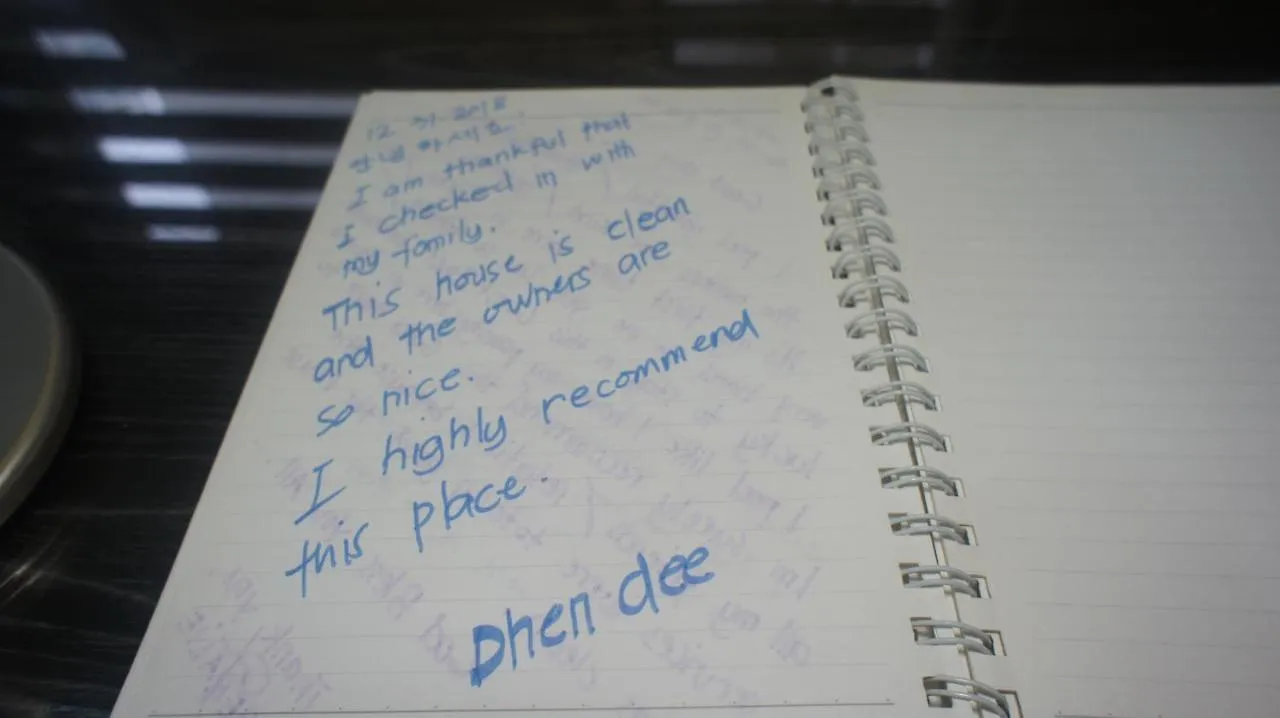 12 31 2018
안녕하세요.
I am thankful that
I checked in with
my family.
This house is clean
and the owners are
so nice.
I highly recommend
this place.
Dhen dee